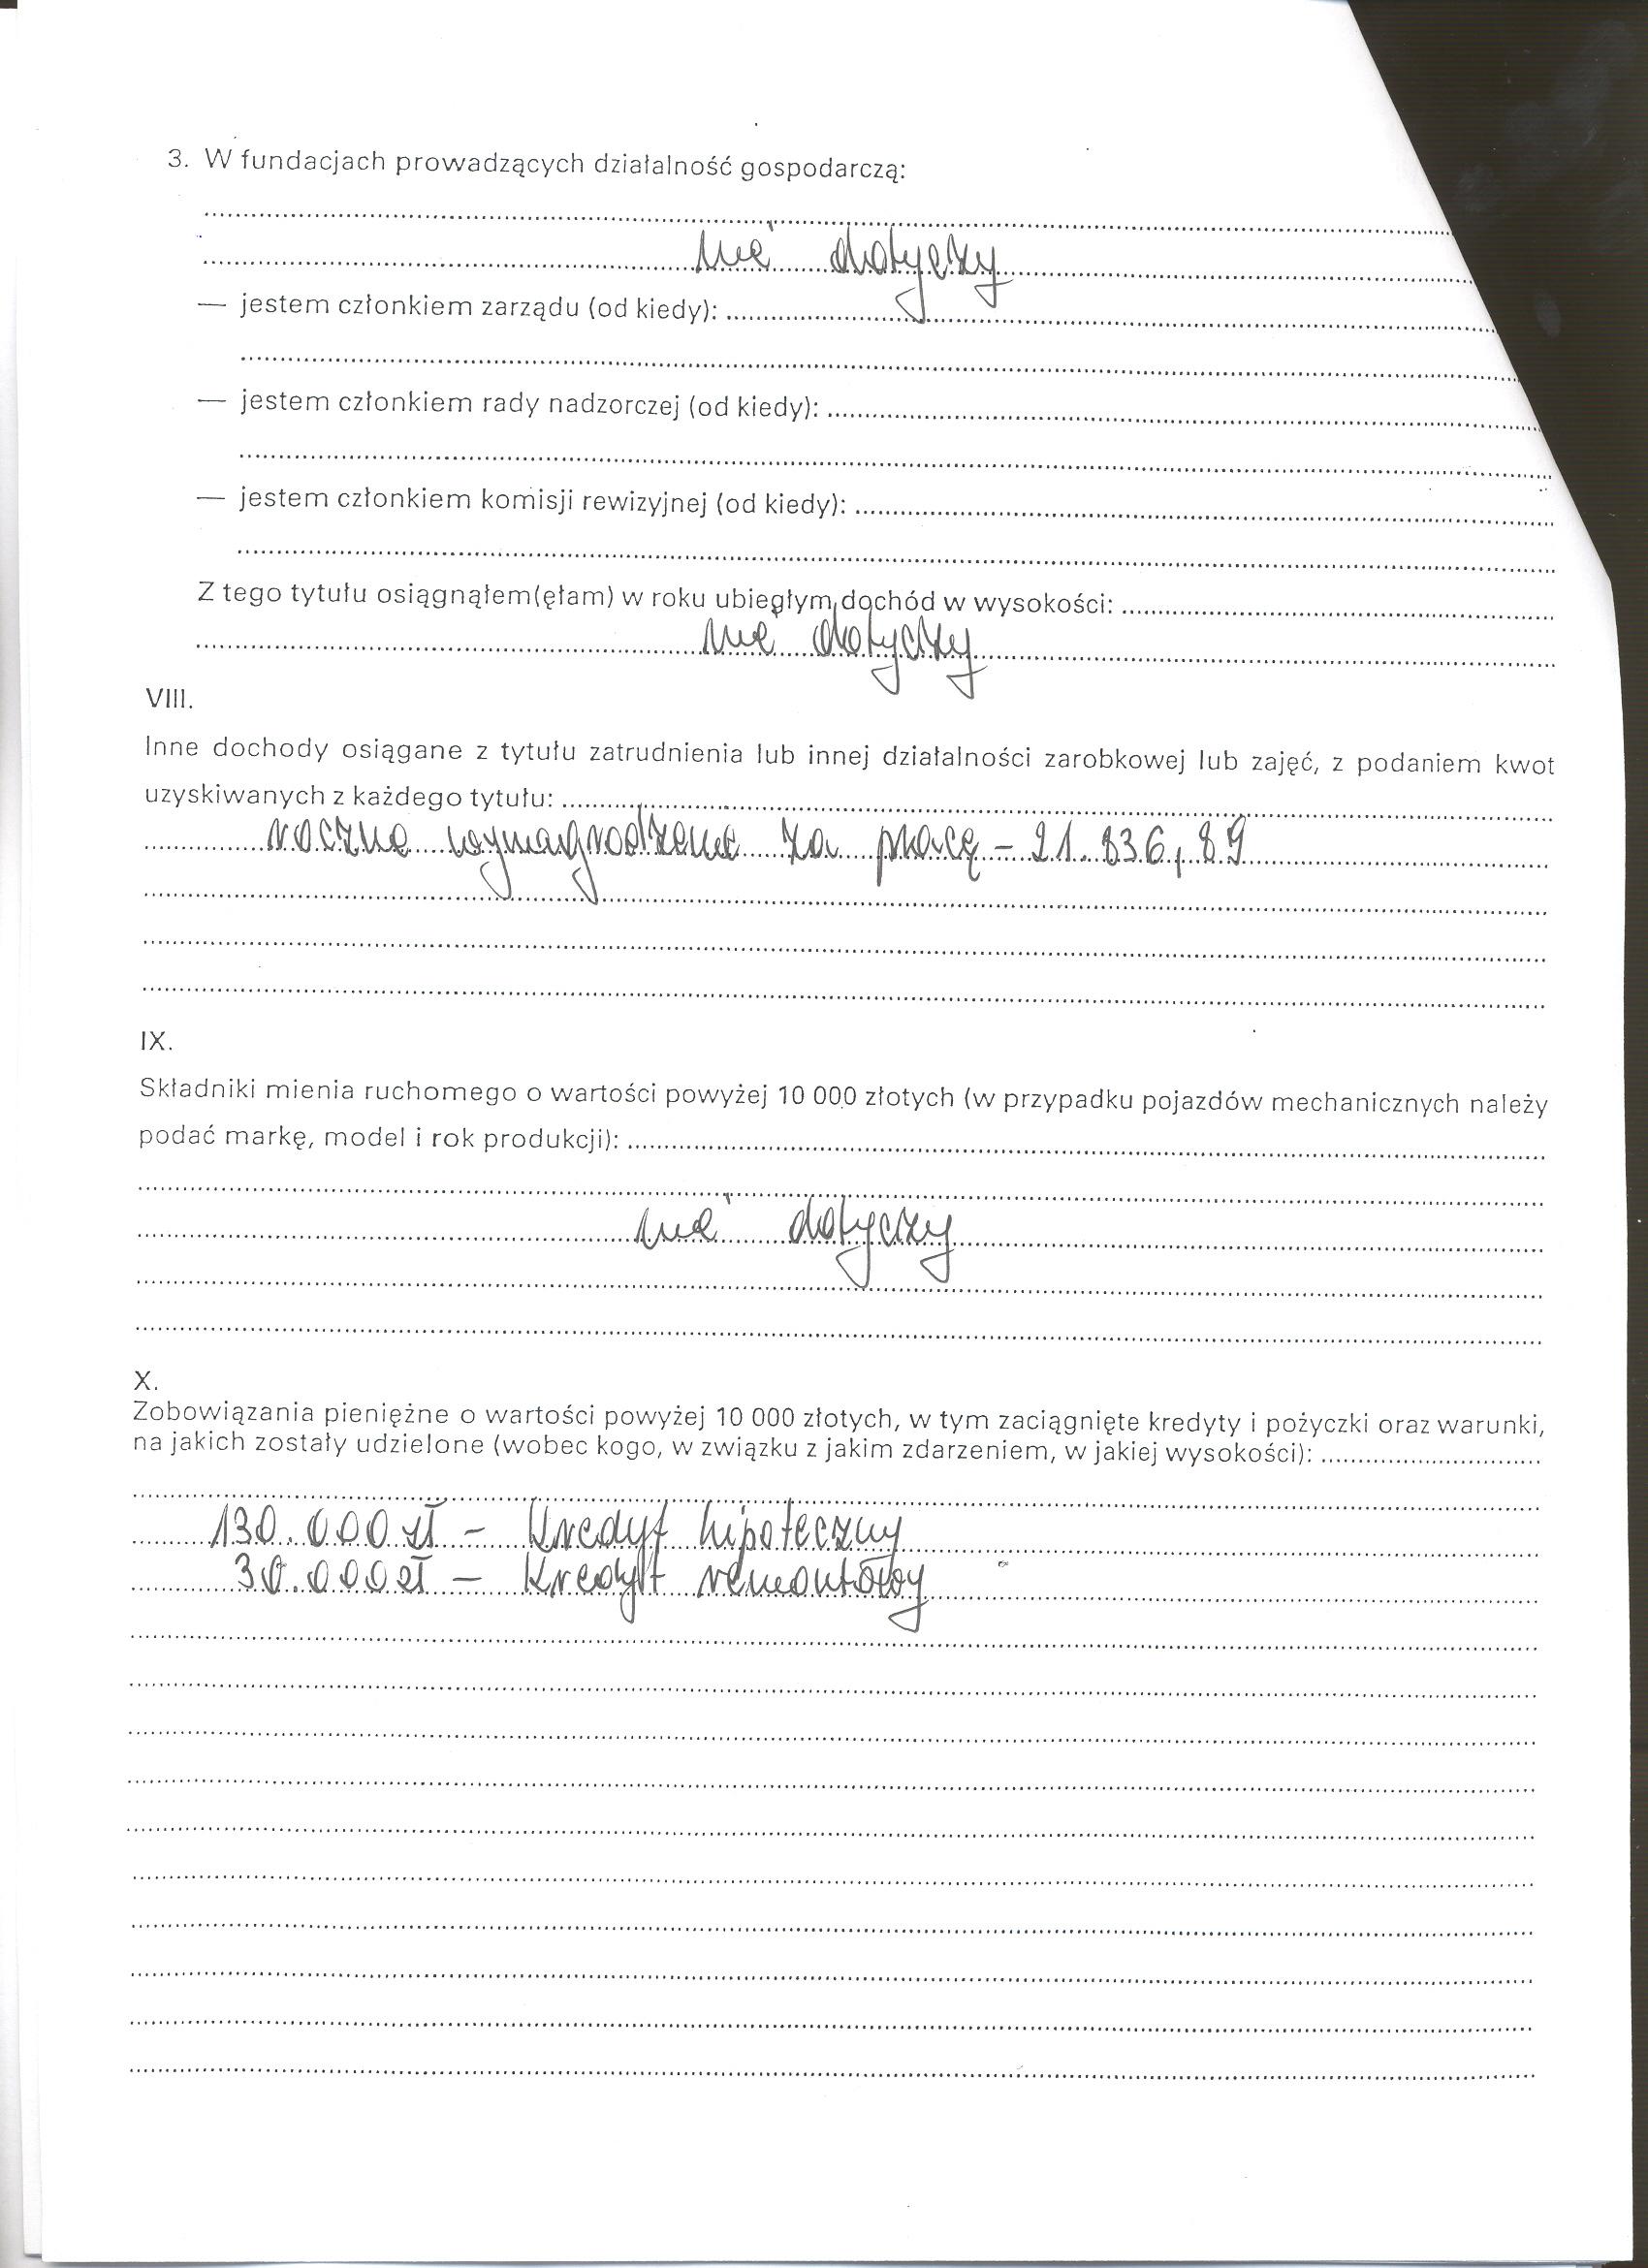 3. W fundacjach prowadzących działalność gospodarczą:
nie dotyczy
— jestem członkiem zarządu (od kiedy):
— jestem członkiem rady nadzorczej (od kiedy):
— jestem członkiem komisji rewizyjnej (od kiedy):
Z tego tytułu osiągnąłem(ęłam) w roku ubiegłym dochód w wysokości:
nie dotyczy
VIII.
Inne dochody osiągane z tytułu zatrudnienia lub innej działalności zarobkowej lub zajęć, z podaniem kwot
uzyskiwanych z każdego tytułu:
roczne wynagrodzenie za pracę - 21.836,89
IX.
Składniki mienia ruchomego o wartości powyżej 10 000 złotych (w przypadku pojazdów mechanicznych należy
podać markę, model i rok produkcji):
nie dotyczy
X.
Zobowiązania pieniężne o wartości powyżej 10 000 złotych, w tym zaciągnięte kredyty i pożyczki oraz warunki,
na jakich zostały udzielone (wobec kogo, w związku z jakim zdarzeniem, w jakiej wysokości):
130.000 zł - kredyt hipoteczny
30.000 zł - kredyt remontowy